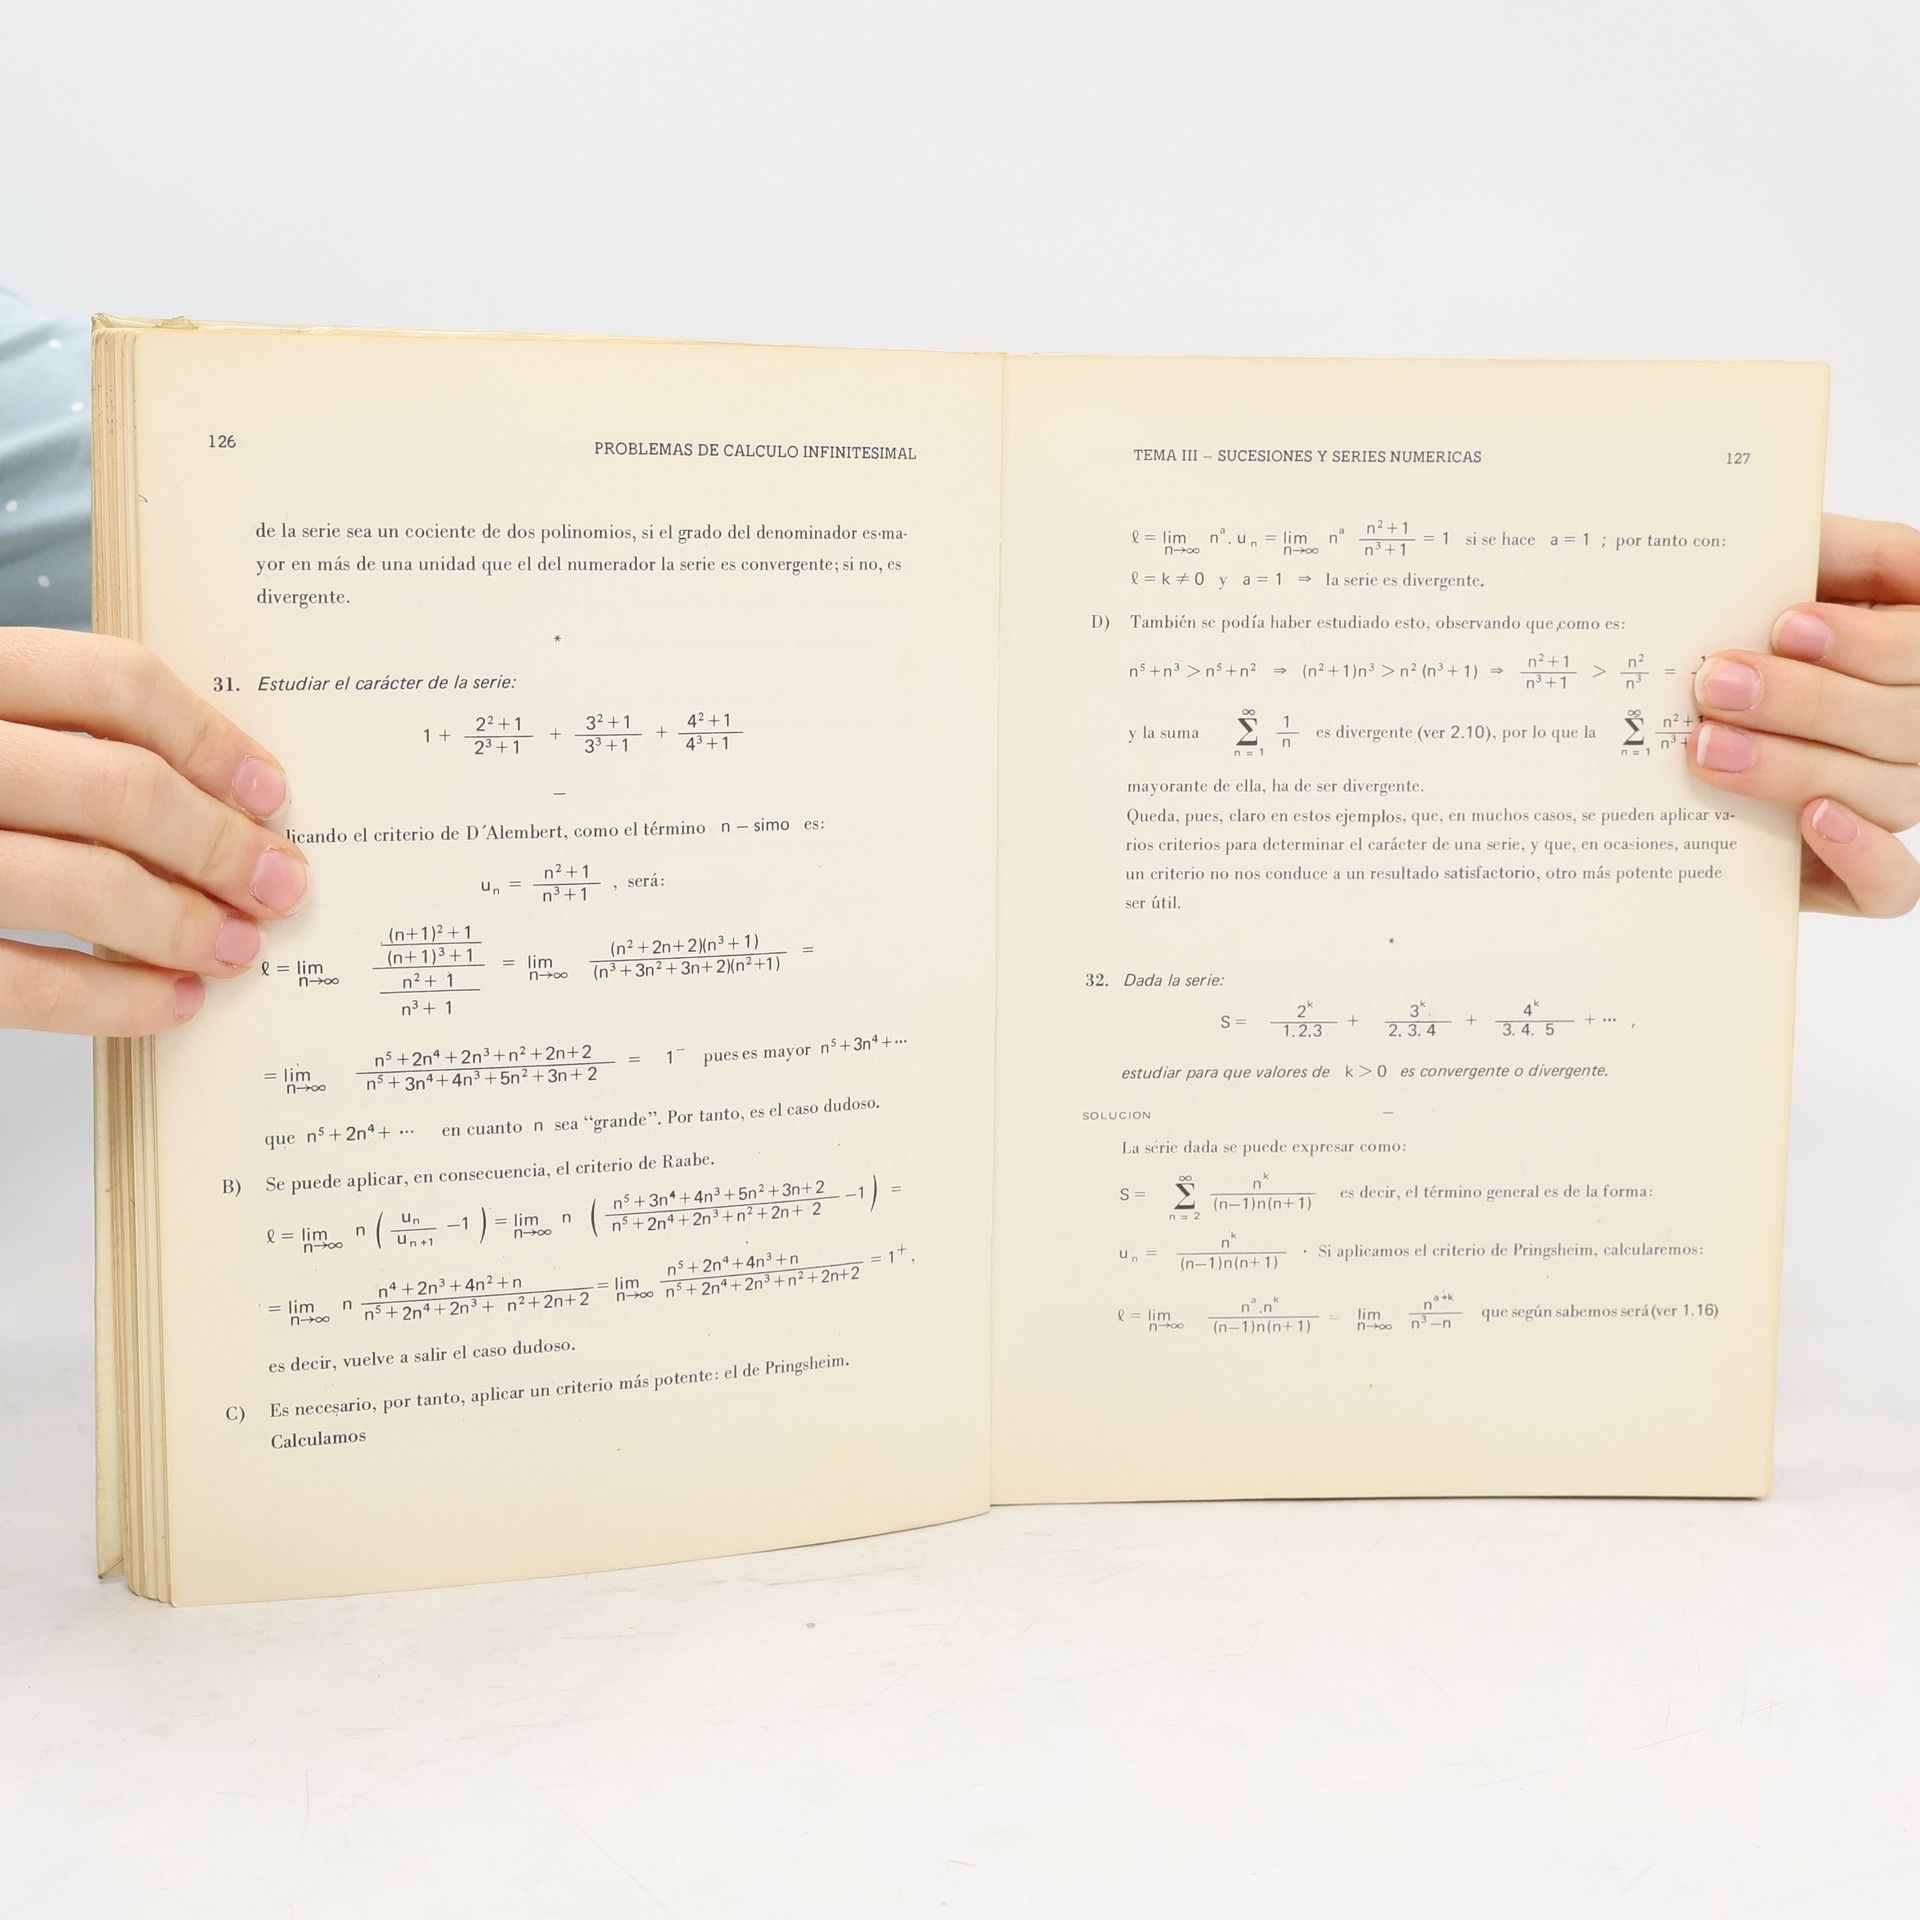 126
PROBLEMAS DE CALCULO INFINITESIMAL
de la serie sea un cociente de dos polinomios, si el grado del denominador es ma-
yor en más de una unidad que el del numerador la serie es convergente; si no, es
divergente.
*
31. Estudiar el carácter de la serie:
1 + (2² + 1)/(2³ + 1) + (3² + 1)/(3³ + 1) + (4² + 1)/(4³ + 1)
—
licando el criterio de D´Alembert, como el término n – simo es:
uₙ = (n² + 1)/(n³ + 1) , será:
ℓ = lim n→∞ (((n+1)² + 1)/((n+1)³ + 1))/((n² + 1)/(n³ + 1)) = lim n→∞ ((n² + 2n + 2)(n³ + 1))/((n³ + 3n² + 3n + 2)(n² + 1)) =
= lim n→∞ (n⁵ + 2n⁴ + 2n³ + n² + 2n + 2)/(n⁵ + 3n⁴ + 4n³ + 5n² + 3n + 2) = 1⁻ pues es mayor n⁵ + 3n⁴ + ···
que n⁵ + 2n⁴ + ··· en cuanto n sea “grande”. Por tanto, es el caso dudoso.
B) Se puede aplicar, en consecuencia, el criterio de Raabe.
ℓ = lim n→∞ n (uₙ/uₙ₊₁ – 1) = lim n→∞ n ((n⁵ + 3n⁴ + 4n³ + 5n² + 3n + 2)/(n⁵ + 2n⁴ + 2n³ + n² + 2n + 2) – 1) =
= lim n→∞ n (n⁴ + 2n³ + 4n² + n)/(n⁵ + 2n⁴ + 2n³ + n² + 2n + 2) = lim n→∞ (n⁵ + 2n⁴ + 4n³ + n)/(n⁵ + 2n⁴ + 2n³ + n² + 2n + 2) = 1⁺,
es decir, vuelve a salir el caso dudoso.
C) Es necesario, por tanto, aplicar un criterio más potente: el de Pringsheim.
Calculamos
TEMA III – SUCESIONES Y SERIES NUMERICAS
127
ℓ = lim n→∞ nᵃ . uₙ = lim n→∞ nᵃ (n² + 1)/(n³ + 1) = 1 si se hace a = 1 ; por tanto con:
ℓ = k ≠ 0 y a = 1 ⇒ la serie es divergente.
D) También se podía haber estudiado esto, observando que como es:
n⁵ + n³ > n⁵ + n² ⇒ (n² + 1)n³ > n² (n³ + 1) ⇒ (n² + 1)/(n³ + 1) > n²/n³ =
y la suma ∞ Σ n = 1 1/n es divergente (ver 2.10), por lo que la ∞ Σ n = 1 n² + / n³ +
mayorante de ella, ha de ser divergente.
Queda, pues, claro en estos ejemplos, que, en muchos casos, se pueden aplicar va-
rios criterios para determinar el carácter de una serie, y que, en ocasiones, aunque
un criterio no nos conduce a un resultado satisfactorio, otro más potente puede
ser útil.
*
32. Dada la serie:
S = 2ᵏ/(1.2.3) + 3ᵏ/(2. 3. 4) + 4ᵏ/(3. 4. 5) + ··· ,
estudiar para que valores de k > 0 es convergente o divergente.
—
SOLUCION
La serie dada se puede expresar como:
S = ∞ Σ n = 2 nᵏ/((n–1)n(n+1)) es decir, el término general es de la forma:
uₙ = nᵏ/((n–1)n(n+1)) · Si aplicamos el criterio de Pringsheim, calcularemos:
ℓ = lim n→∞ (nᵃ.nᵏ)/((n–1)n(n+1)) = lim n→∞ nᵃ⁺ᵏ/(n³–n) que según sabemos será (ver 1.16)